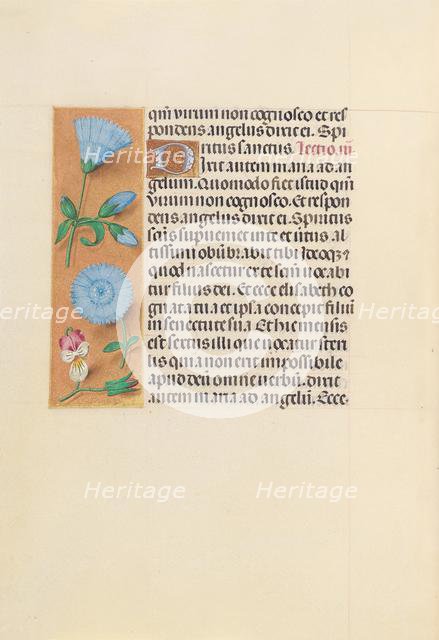 qm̄ virum non cognosco et res
pondens angelus dixit ei. Spi
ritus sanctus. Lectio .iii.
Dixit autem maria ad an
gelum. Quomodo fiet istud qm̄
virum non cognosco. Et respon
dens angelus dixit ei. Spiritus
sc̄us superveniet in te et virtus al
tissimi obūbrabit tibi Ideoqz et
quod nascetur ex te sc̄m vocabi
tur filius dei. Et ecce elisabeth co
gnata tua et ipsa concepit filiū
in senectute sua. Et hic mensis
est sextus illi que vocatur steri
lis quia non erit impossibile
apud deū omne verbū. Dixit
autem maria ad angelū. Ecce
Heritage Heritage
Heritage Heritage Heritage
Heritage Heritage